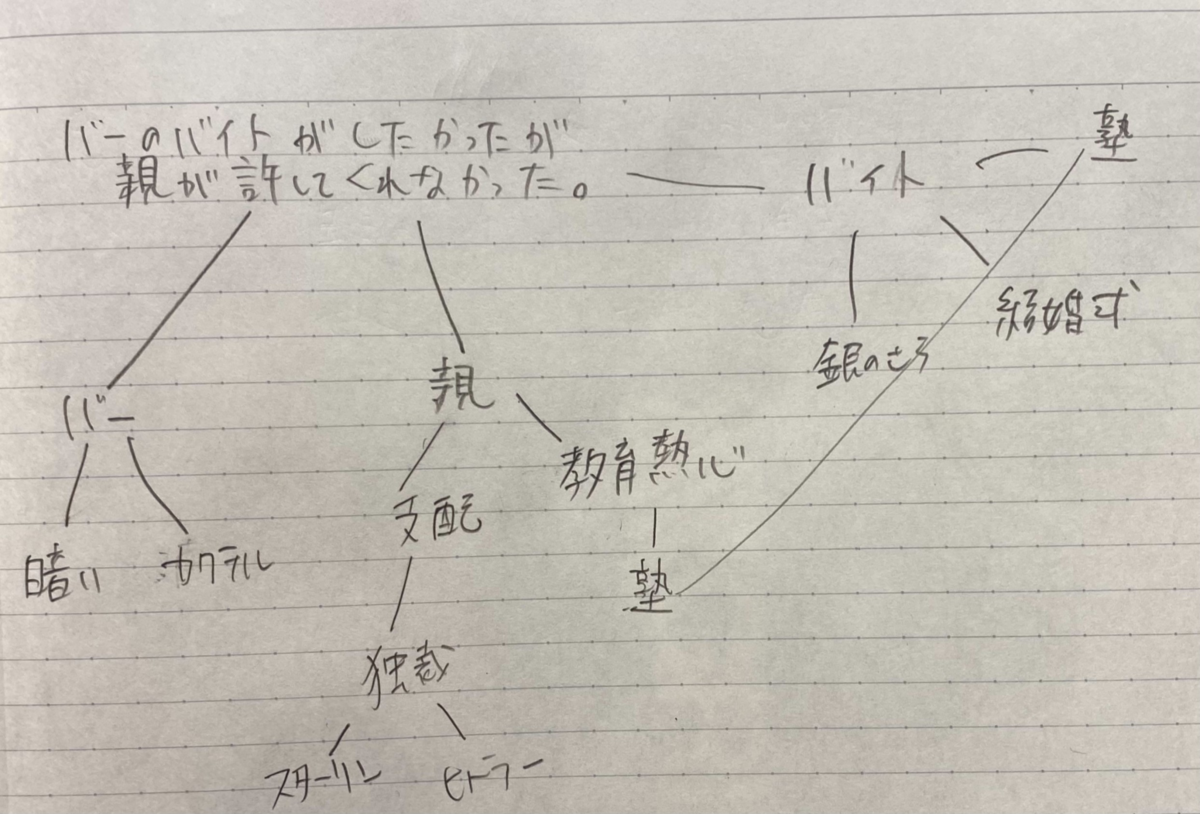 バーのバイトがしたかったが
親が許してくれなかった。
バイト
塾
結婚式
銀のさら
バー
暗い
カクテル
親
教育熱心
塾
支配
独裁
スターリン
ヒトラー